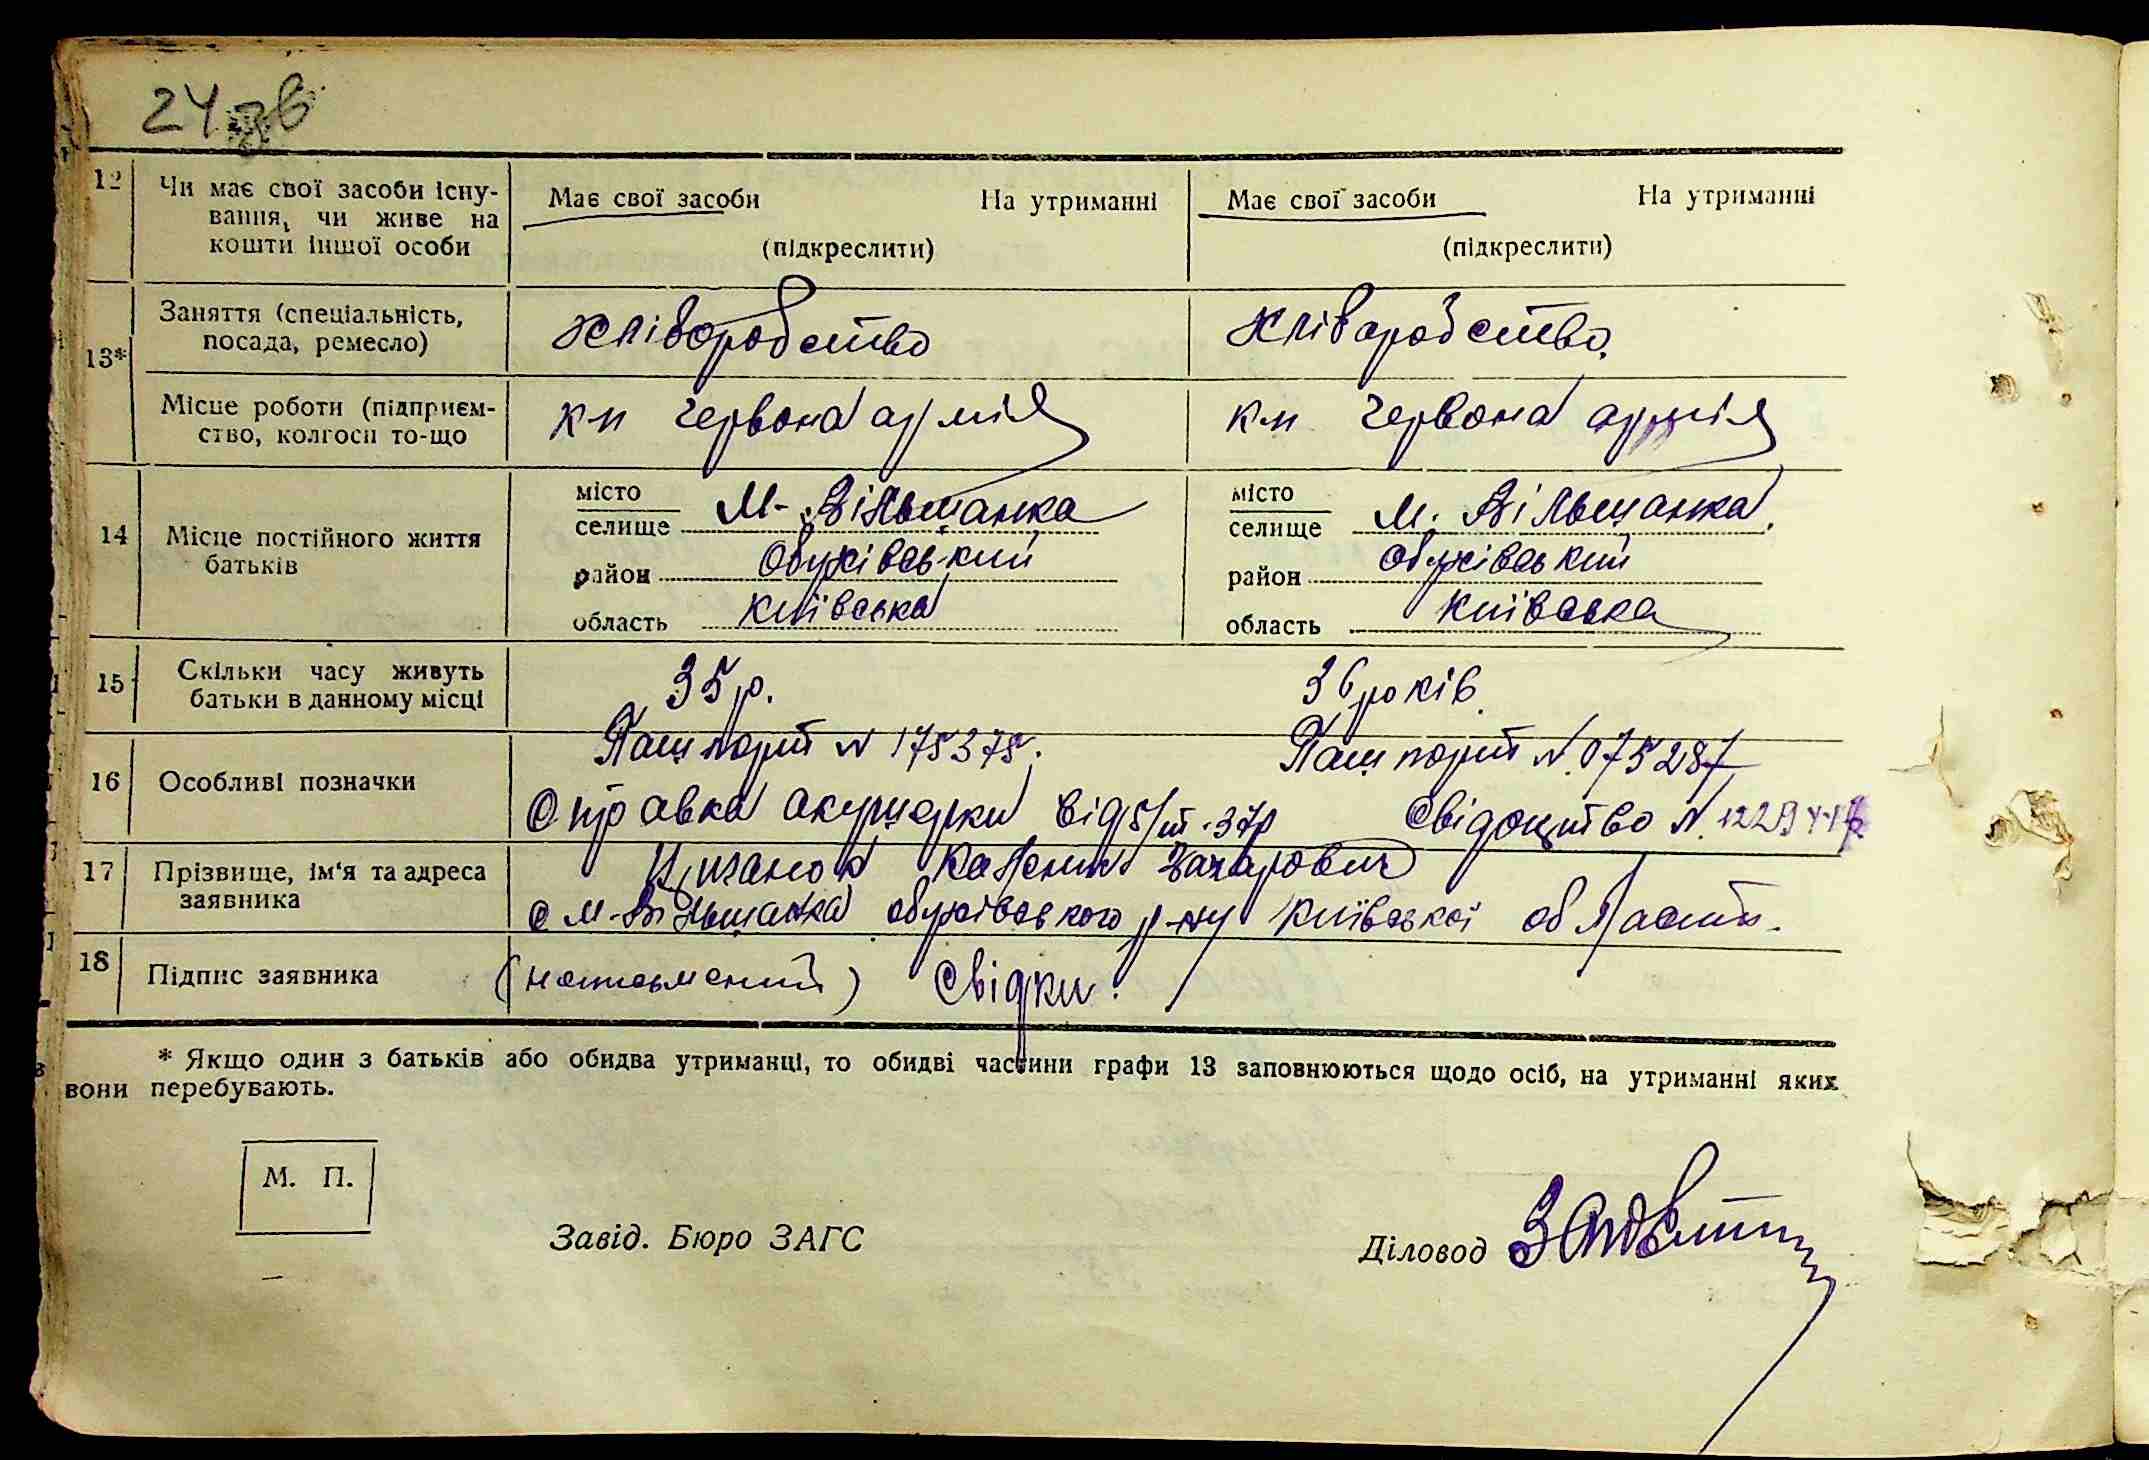 24 зв
12 Чи має свої засоби існу-
вання, чи живе на
кошти іншої особи
Має свої засоби На утриманні
(підкреслити)
Має свої засоби На утриманні
(підкреслити)
13* Заняття (спеціальність,
посада, ремесло)
хліборобство
хліборобство.
Місце роботи (підприєм-
ство, колгосп то-що
к-п червона армія
к-п червона армія
14 Місце постійного життя
батьків
місто
селище М- Вільшанка
район Обухівський
область Київська
місто
селище М. Вільшанка.
район Обухівський
область Київська
15 Скільки часу живуть
батьки в данному місці
35 р.
36 років.
16 Особливі позначки
Пашпорт N 175375.
Пашпорт N. 075287
Справка акушерки від 5/ 37р
Свідоцтво N.
17 Прізвище, ім'я та адреса
заявника
Захарович
с м. Вільшанка обухівського р-ну Київської області.
18 Підпис заявника
(неписьмений) Свідки:
* Якщо один з батьків або обидва утриманці, то обидві частини графи 13 заповнюються щодо осіб, на утриманні яких
вони перебувають.
М. П.
Завід. Бюро ЗАГС
Діловод